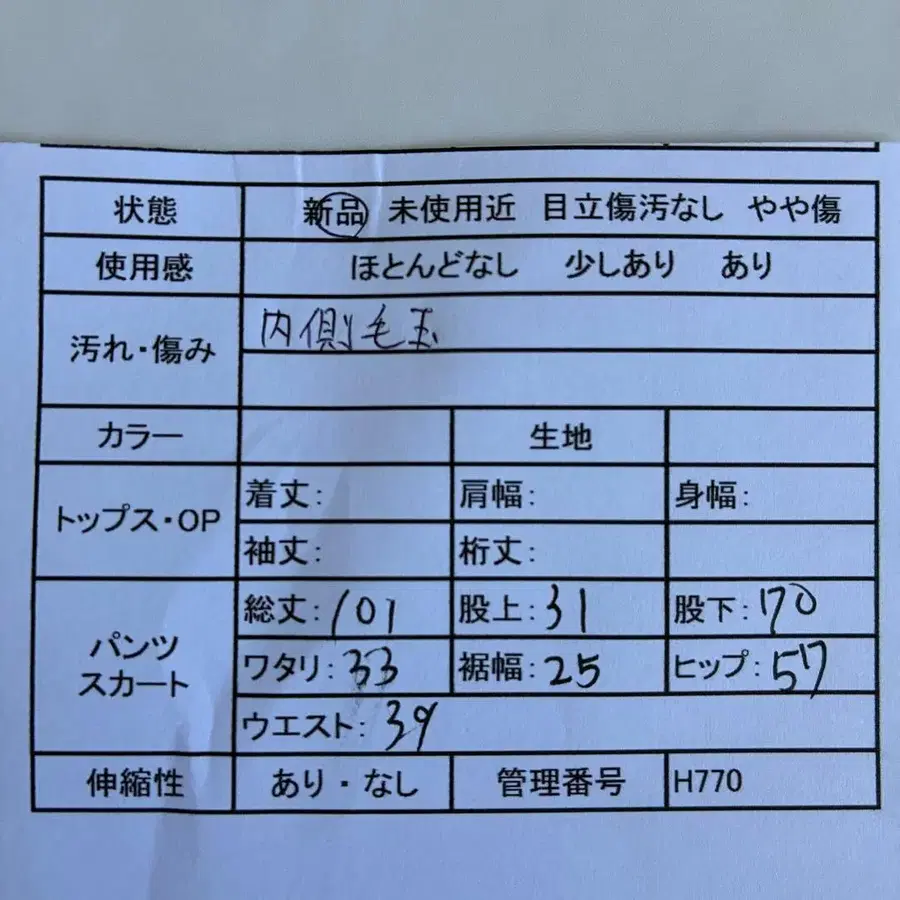 状態 新品 未使用近 目立傷汚なし やや傷
使用感 ほとんどなし 少しあり あり
汚れ・傷み 内側毛玉
カラー 生地
トップス・OP 着丈: 肩幅: 身幅:
袖丈: 桁丈:
パンツ スカート 総丈:101 股上:31 股下:70
ワタリ:33 裾幅:25 ヒップ:57
ウエスト:39
伸縮性 あり・なし 管理番号 H770